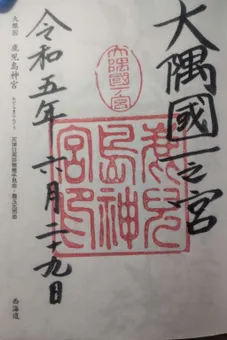 大隅國一之宮
大隅國一宮
鹿児島神宮印
令和五年六月二十九日
大隅国 鹿児島神宮
西海道